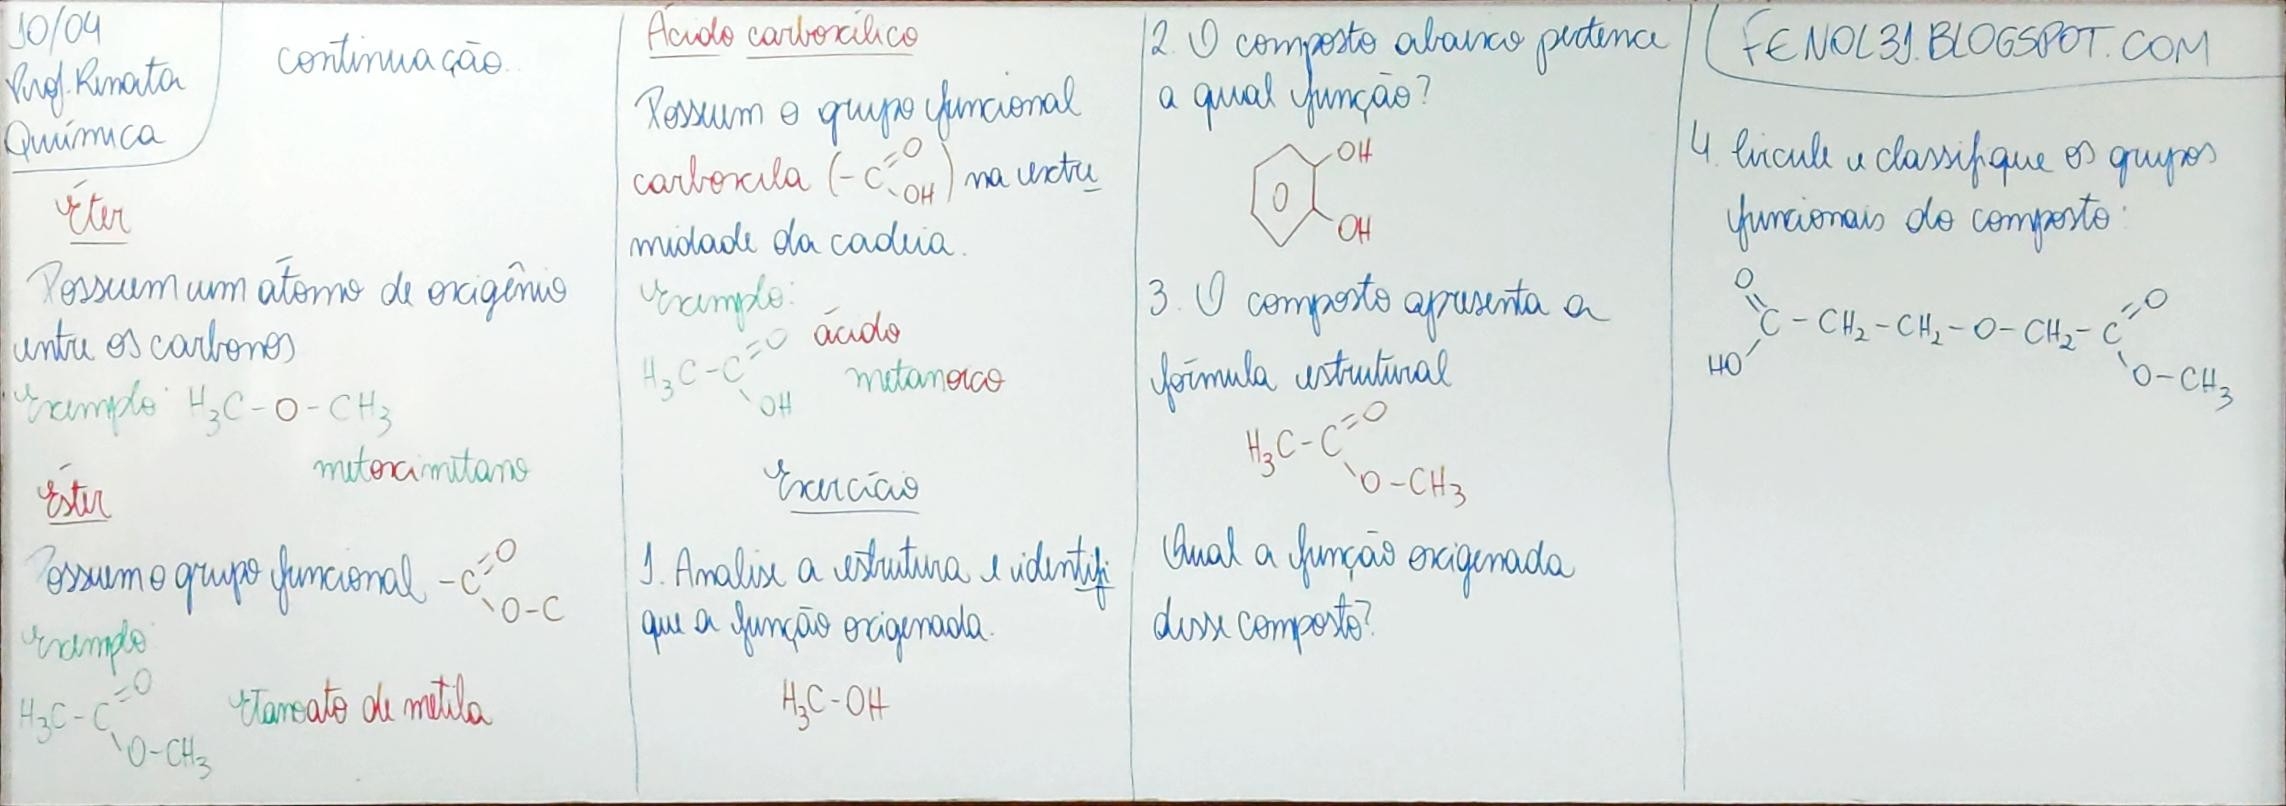 10/04
Prof. Renata
Química
continuação
Éter
Possuem um átomo de oxigênio
entre os carbonos
Exemplo: H₃C-O-CH₃
metoximetano
Éster
Possuem o grupo funcional -C=O
O-C
Exemplo:
H₃C-C=O
O-CH₃
Etanoato de metila
Ácido carboxílico
Possuem o grupo funcional
carboxila (-C=O OH) na extre
midade da cadeia.
Exemplo:
H₃C-C=O
OH
ácido
metanoico
Exercício
1. Analise a estrutura e identifi
que a função oxigenada.
H₃C-OH
2. O composto abaixo pertence
a qual função?
OH
OH
3. O composto apresenta a
fórmula estrutural
H₃C-C=O
O-CH₃
Qual a função oxigenada
desse composto?
FENOL31.BLOGSPOT.COM
4. Circule e classifique os grupos
funcionais do composto:
O O
C-CH₂-CH₂-O-CH₂-C
HO O-CH₃